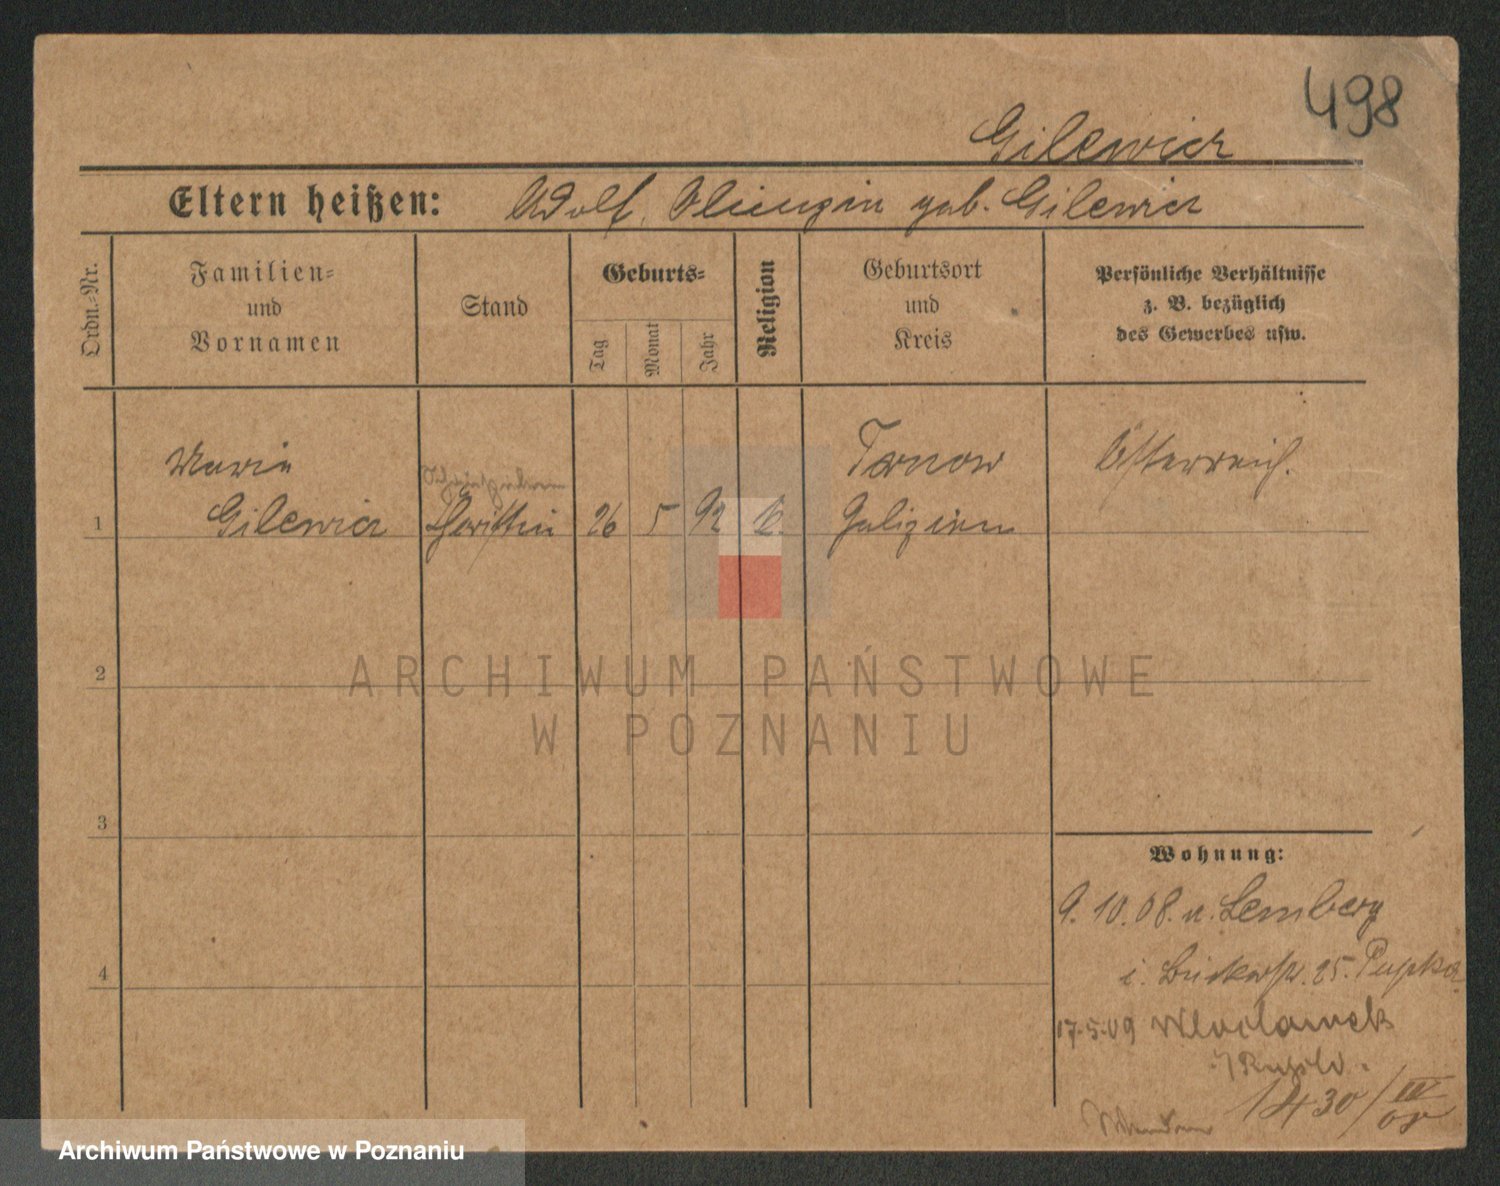 498
Gilewicz
Eltern heißen: Adolf, geb. Gilewicz
Ordn.-Nr.
Familien-
und
Vornamen
Stand
Geburts-
Tag
Monat
Jahr
Religion
Geburtsort
und
Kreis
Persönliche Verhältnisse
z. B. bezüglich
des Gewerbes usw.
Maria
Tarnow
Österreich.
1 Gilewicz 26 5 92 k. Galizien
2
ARCHIWUM PAŃSTWOWE
W POZNANIU
3
Wohnung:
9.10.08. n. Lemberg
4
i. 25. Pupke
17.5.09 Wloclawek
i/Rußld.
1430/IV
09
Archiwum Państwowe w Poznaniu